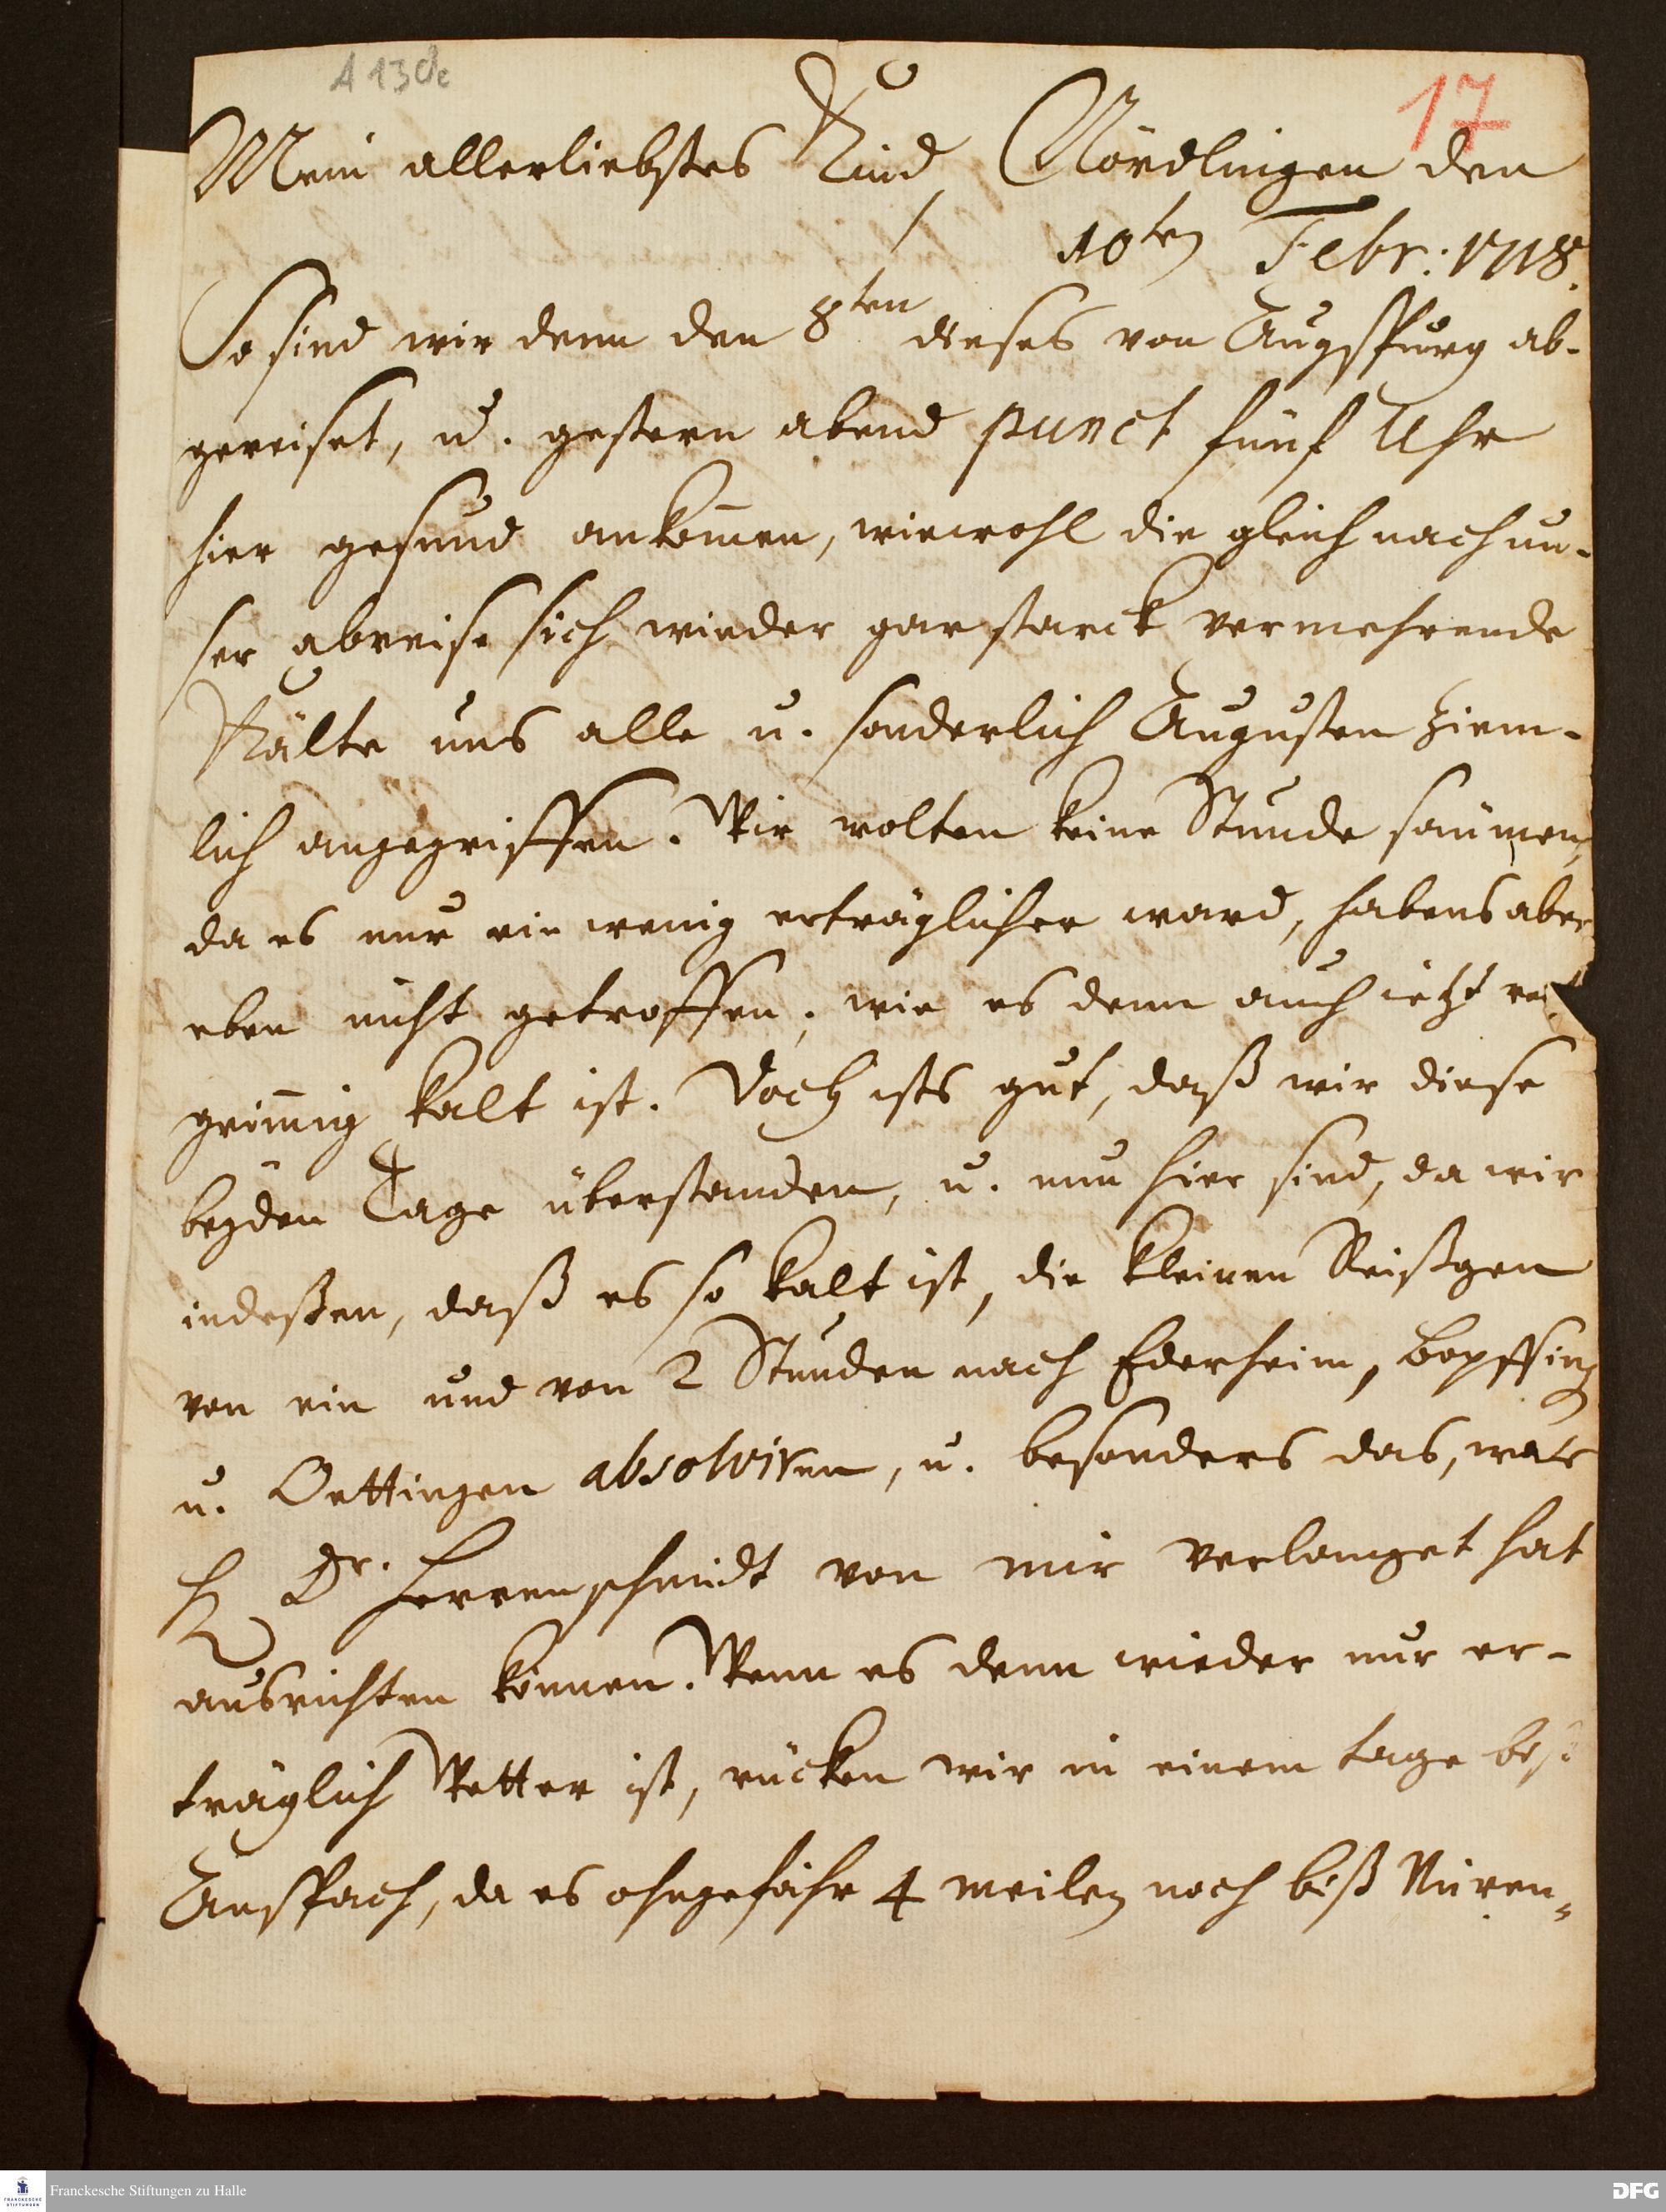 A 13
17
Mein allerliebstes Kind, Nördlingen den
10ten Febr: 1718.
So sind wir denn den 8ten dieses von Augspurg ab-
gereiset, u. gestern abend punct fünf Uhr
hier gesund ankom̄en, wiewohl die gleich nach un-
ser abreise sich wieder gar starck vermehrende
Kälte uns alle u. sonderlich Augusten ziem-
lich angegriffen. Wir wolten keine Stunde säumen,
da es nur ein wenig erträglicher ward, habens aber
eben nicht getroffen, wie es denn auch ietzt
grim̄ig kalt ist. Doch ists gut, daß wir diese
beyden Tage überstanden, u. nun hier sind, da wir
indeßen, daß es so kalt ist, die kleinen Reißgen
von ein und von 2 Stunden nach Ederheim, Bopffing
u. Oettingen absolviren, u. besonders das, was
H Dr. Herrenschmidt von mir verlanget hat
ausrichten können. Wenn es denn wieder nur er-
träglich Wetter ist, rücken wir in einem tage biß
Anspach, da es ohngefähr 4 meilen noch biß Nüren-
Franckesche Stiftungen zu Halle
FRANCKESCHE STIFTUNGEN
DFG